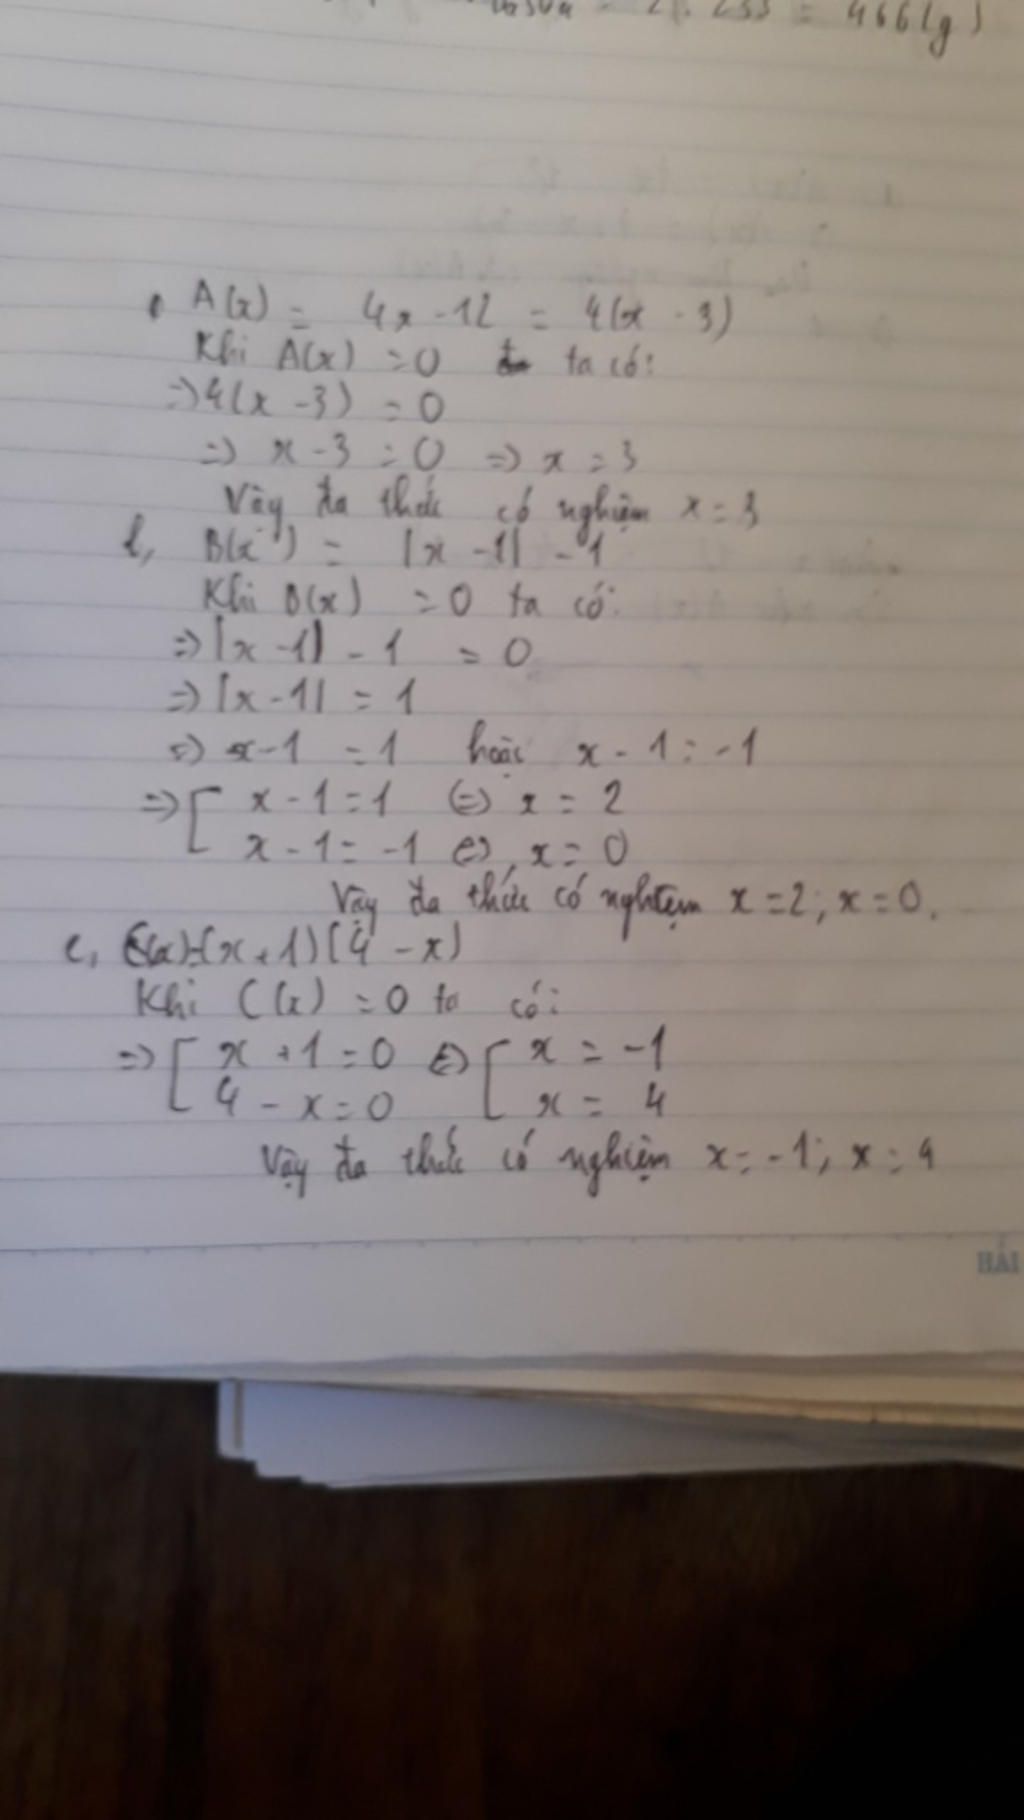 = 466(g)
A(x) = 4x - 12 = 4(x - 3)
Khi A(x) = 0 ta có:
=> 4(x - 3) = 0
=> x - 3 = 0 => x = 3
Vậy đa thức có nghiệm x = 3
b, B(x) = |x - 1| - 1
Khi B(x) = 0 ta có:
=> |x - 1| - 1 = 0
=> |x - 1| = 1
=> x - 1 = 1 hoặc x - 1 = -1
=> [ x - 1 = 1 <=> x = 2
x - 1 = -1 <=> x = 0
Vậy đa thức có nghiệm x = 2; x = 0.
c, C(x) = (x + 1)(4 - x)
Khi C(x) = 0 ta có:
=> [ x + 1 = 0 <=> [ x = -1
4 - x = 0 x = 4
Vậy đa thức có nghiệm x = -1; x = 4
HẢI